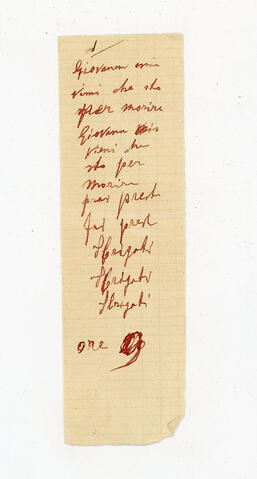 1
Giovanna mia
vieni che sto
per morire
Giovanna mio
vieni che
sto per
morire
fai prest
fai prest
Sbrigati
Sbrigati
Sbrigati
ore 9